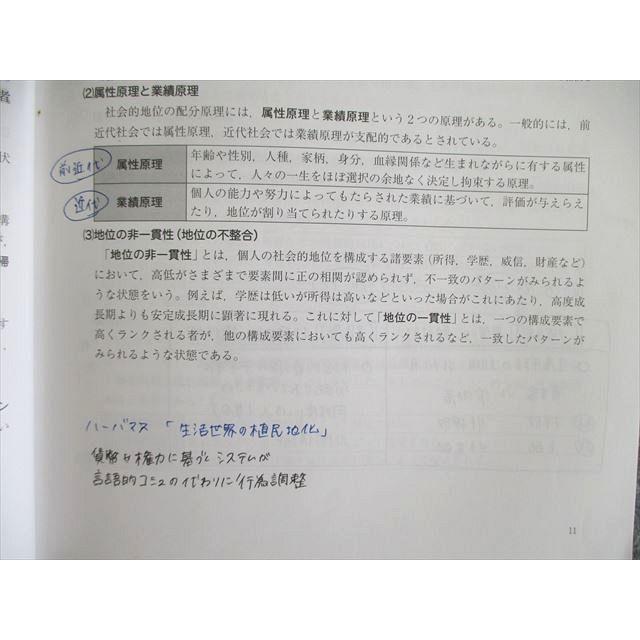 ⑵属性原理と業績原理
社会的地位の配分原理には，属性原理と業績原理という２つの原理がある。一般的には，前
近代社会では属性原理，近代社会では業績原理が支配的であるとされている。
前近代
属性原理
年齢や性別，人種，家柄，身分，血縁関係など生まれながらに有する属性
によって，人々の一生をほぼ選択の余地なく決定し拘束する原理。
近代
業績原理
個人の能力や努力によってもたらされた業績に基づいて，評価が与えらえ
たり，地位が割り当てられたりする原理。
⑶地位の非一貫性（地位の不整合）
「地位の非一貫性」とは，個人の社会的地位を構成する諸要素（所得，学歴，威信，財産など）
において，高低がさまざまで要素間に正の相関が認められず，不一致のパターンがみられるよ
うな状態をいう。例えば，学歴は低いが所得は高いなどといった場合がこれにあたり，高度成
長期よりも安定成長期に顕著に現れる。これに対して「地位の一貫性」とは，一つの構成要素で
高くランクされる者が，他の構成要素においても高くランクされるなど，一致したパターンが
みられるような状態である。
ハーバマス 「生活世界の植民地化」
貨幣や権力に基づくシステムが
言語的コミュの代わりに行為調整
11
者
状
構
が，
帰
す
ン
い